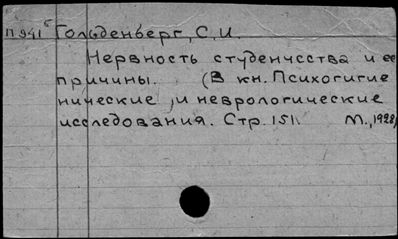 П941б Гольденберг, С.И.
Нервность студенчсства и ее
причины. (В кн. Психогигие
нические и неврологические
исследования. Стр. 151. М., 1928)